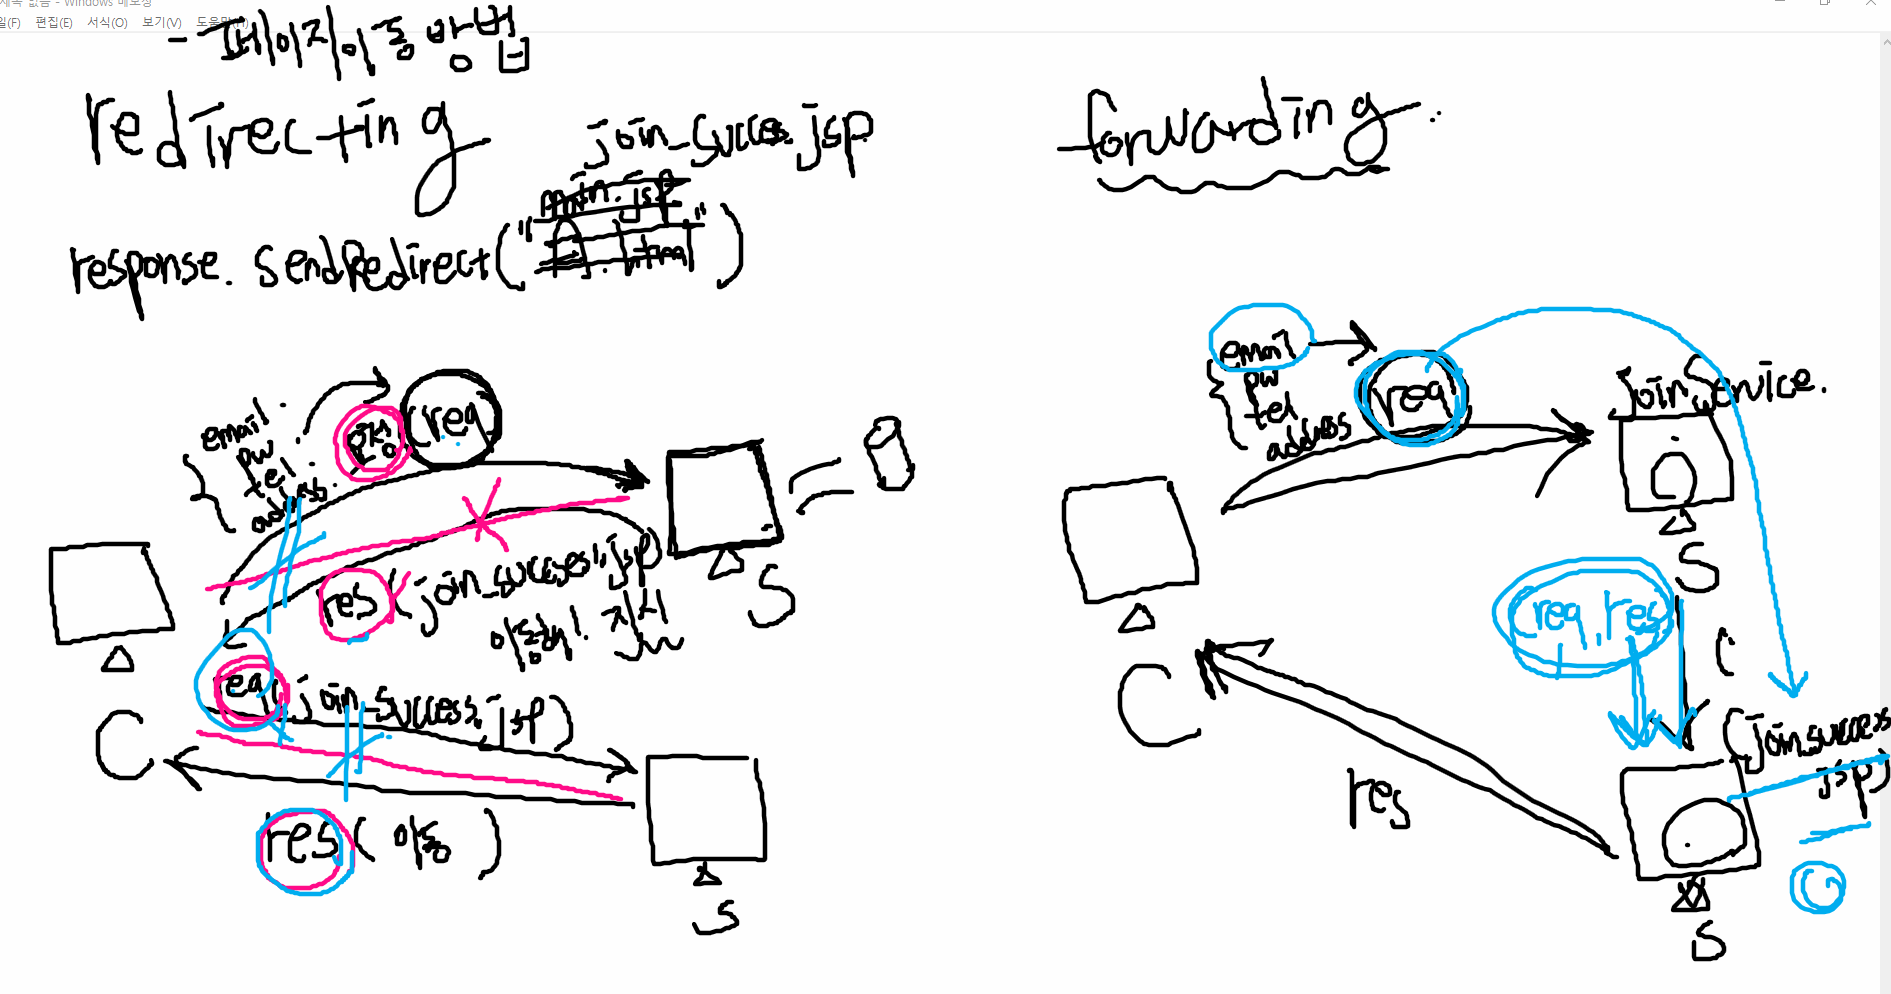 제목 없음 - Windows 메모장
일(F) 편집(E) 서식(O) 보기(V) 도움말(H)
- 페이지이동 방법
redirecting
join_succes.jsp
main.jsp
response.sendRedirect(" .html")
email.
pw
tel.
address.
req
res(join_success.jsp)
이동해!
S
req(join_success.jsp)
C
res(이동)
S
forwarding.
email
pw
tel
address
req
JoinService.
S
req, res
C
(join_success
jsp)
res
S